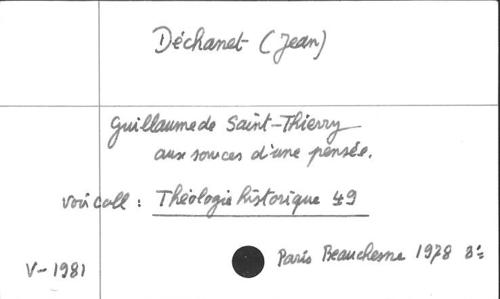 Déchanet (Jean)
Guillaume de Saint-Thierry
aux sources d'une pensée.
voir coll : Théologie historique 49
Paris Beauchesne 1978 8º
V-1981